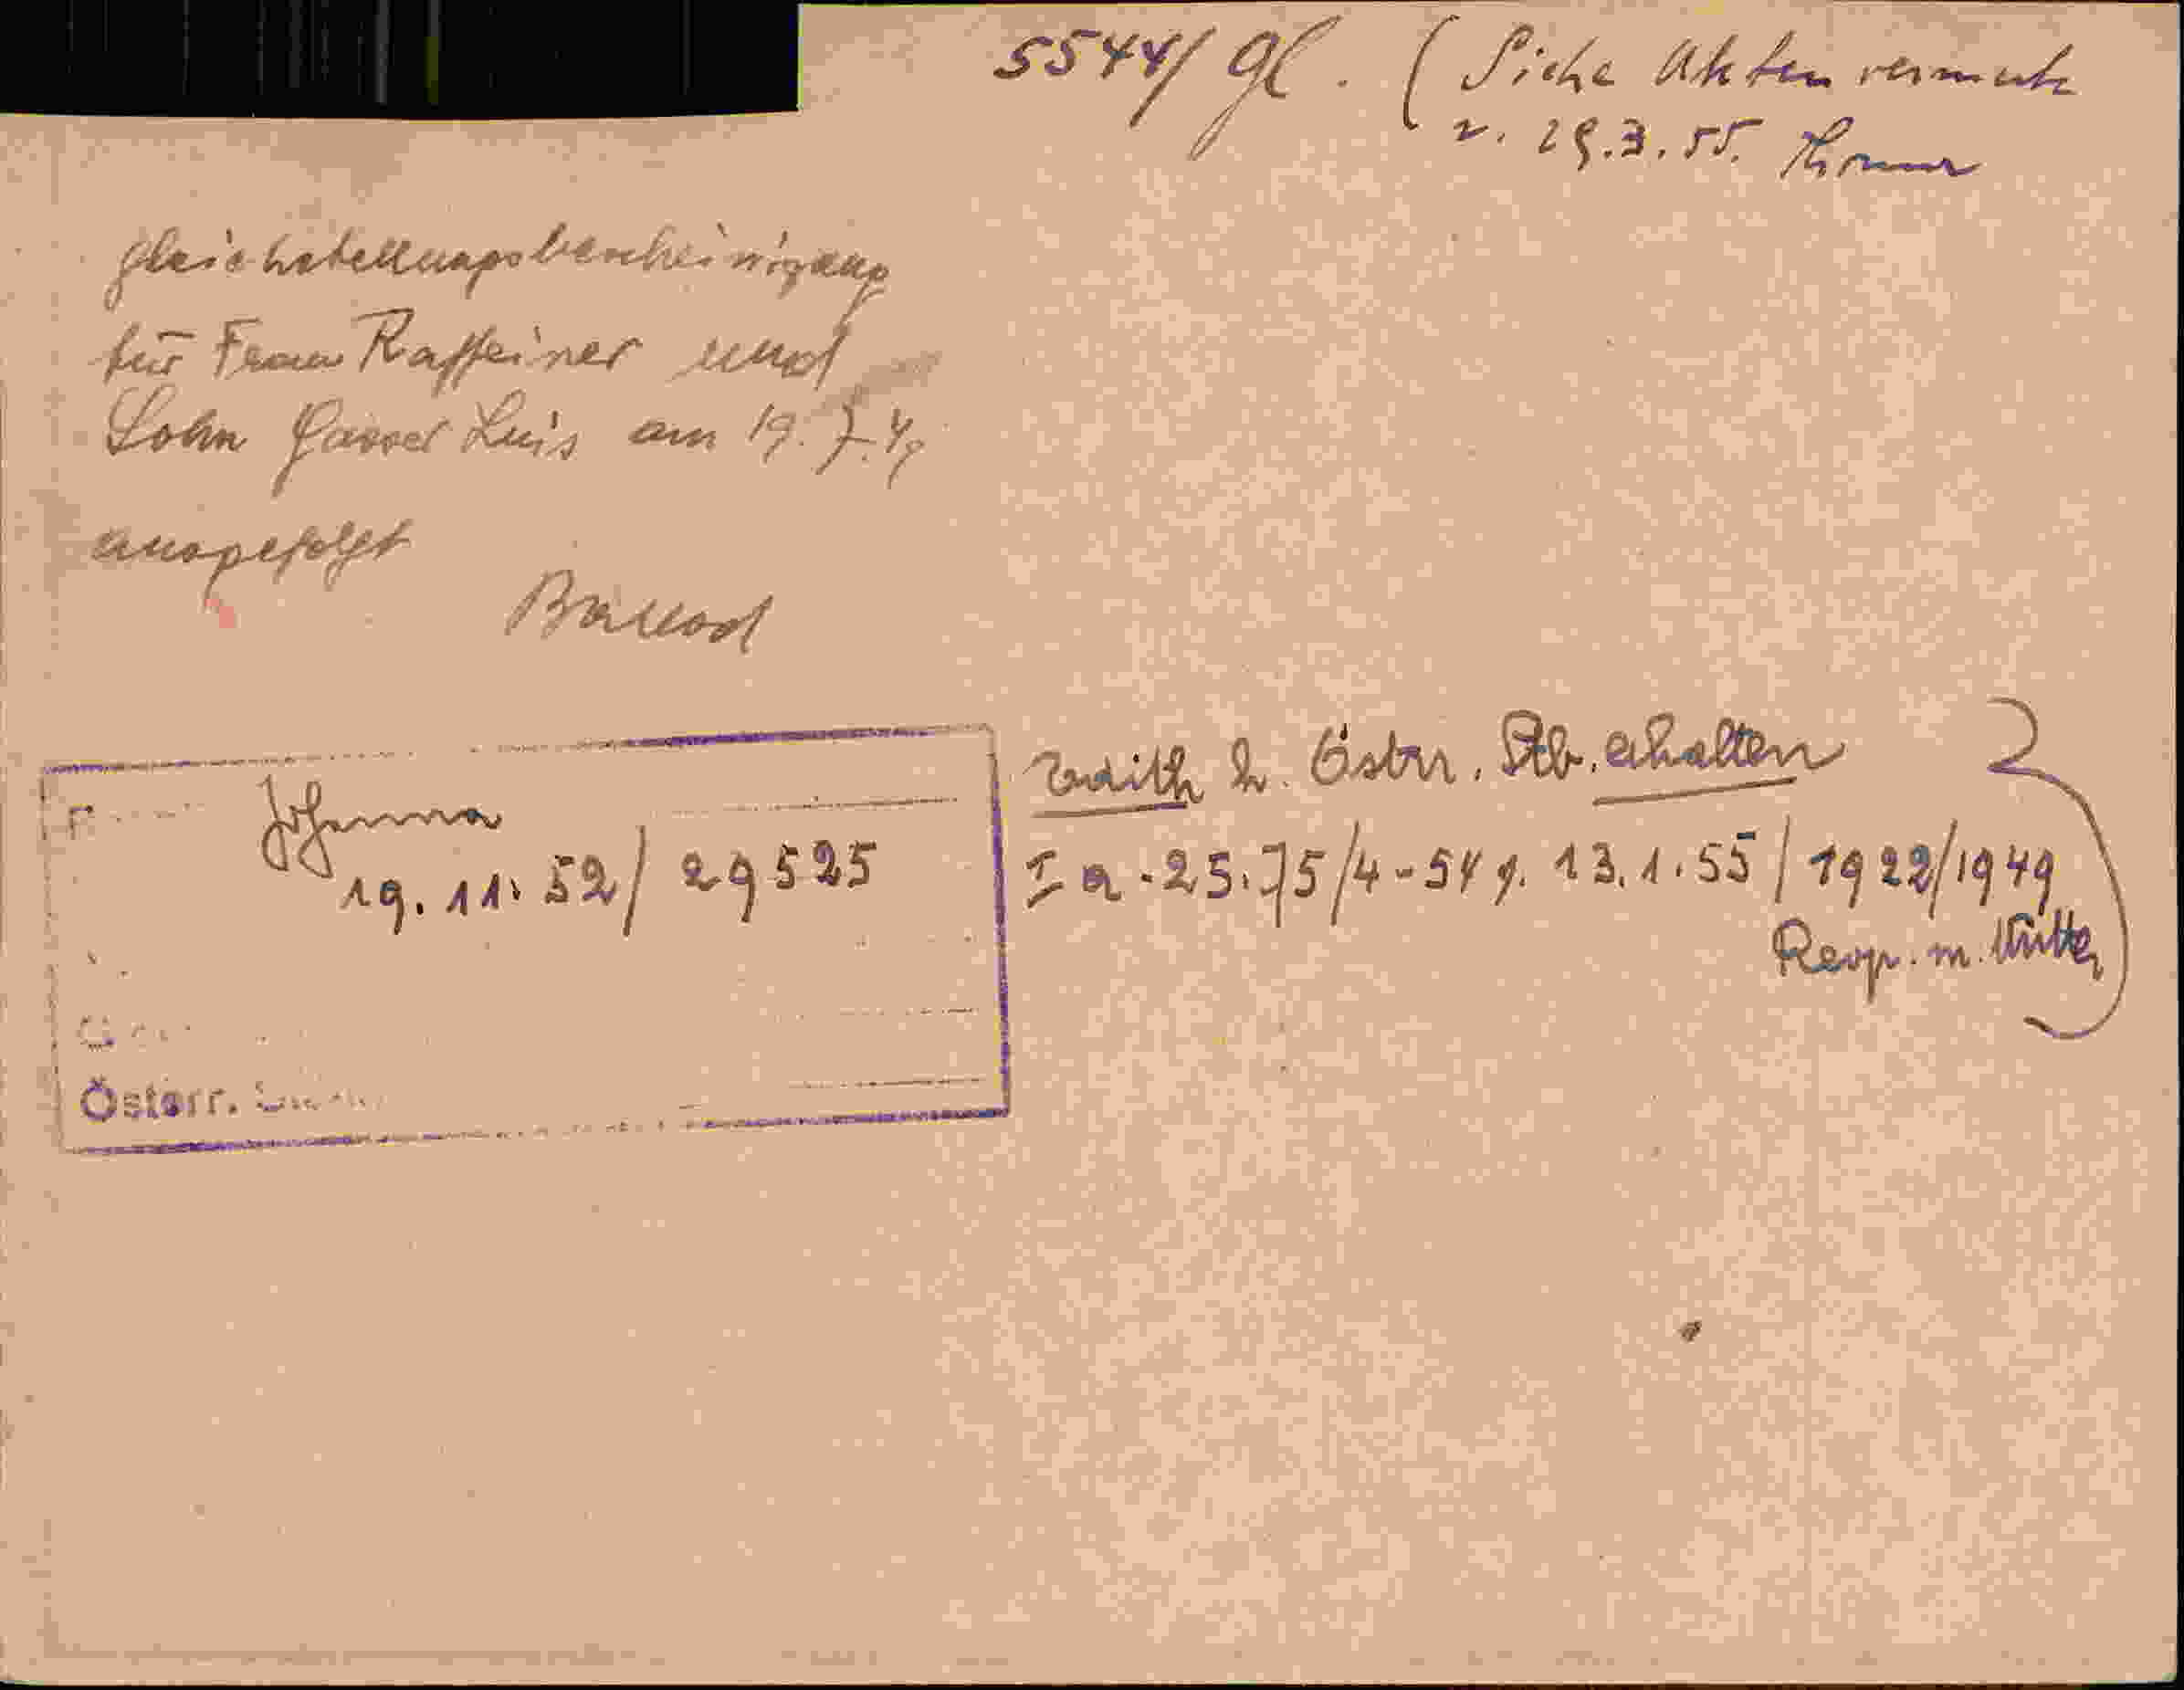 5544/ Gl. (Siehe Aktenvermerk
v. 29.3.55.
Gleichstellungsbescheinigung
für Frau Raffeiner und
Sohn Gasser Luis am 19.7.49
ausgefolgt
Johanna
19.11.52/ 29525
Österr.
Edith h. Österr. Stb. erhalten
I a - 25.75/4-54 v. 13.1.55 / 1922/1949
Resp. m. Mutter